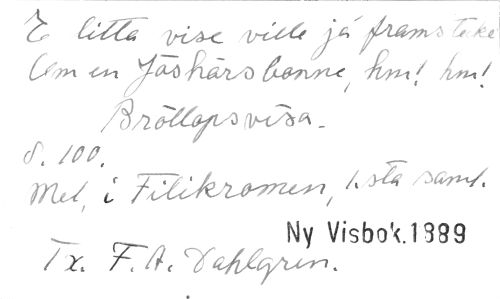 E litta vise ville já framsteke
Um en Jöshärsbonne, hm! hm!
Bröllopsvisa.
S. 100.
Mel, i Filikromen, 1.sta saml.
Ny Visbok.1889
Tx. F. A. Dahlgren.